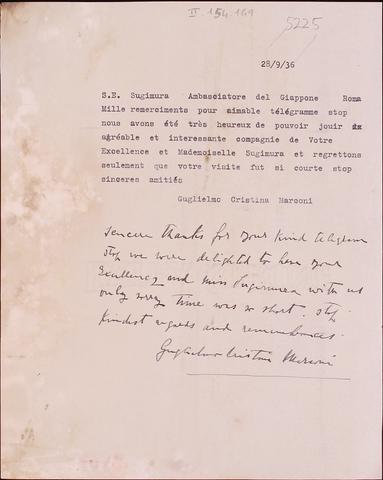 II. 154.169
5225
28/9/36
S.E. Sugimura Ambasciatore del Giappone Roma
Mille remerciments pour aimable télégramme stop
nous avons été très heureux de pouvoir jouir
agréable et interessante compagnie de Votre
Excellence et Mademoiselle Sugimura et regrettons
seulement que votre visite fut si courte stop
sinceres amitiés
Guglielmo Cristina Marconi
sincere thanks for your kind telegram
stop we were delighted to have your
Excellency and Miss Sugimura with us
only sorry time was so short. stop
kindest regards and remembrances.
Guglielmo Cristina Marconi